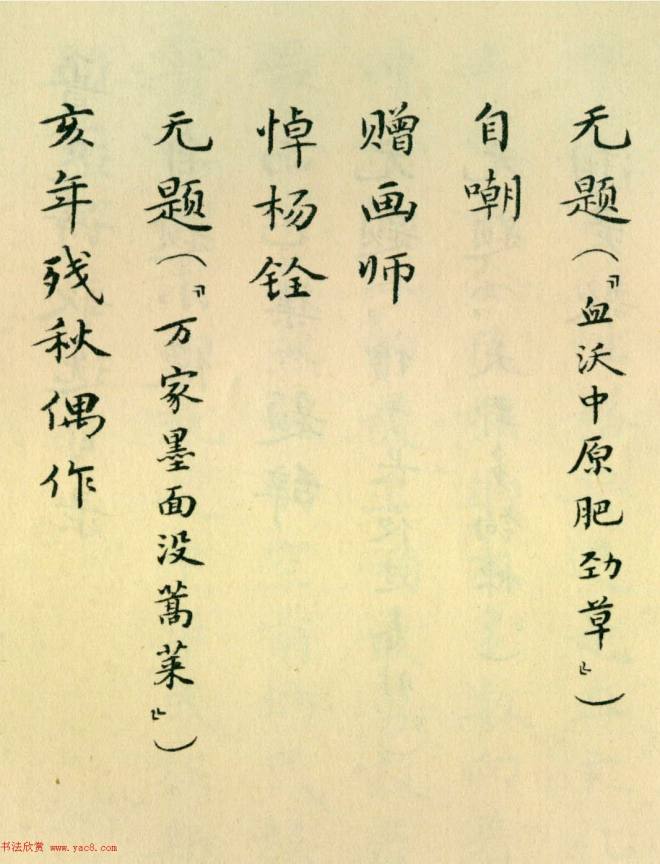 无题（『血沃中原肥劲草』）
自嘲
赠画师
悼杨铨
无题（『万家墨面没蒿莱』）
亥年残秋偶作
书法欣赏 www.yac8.com